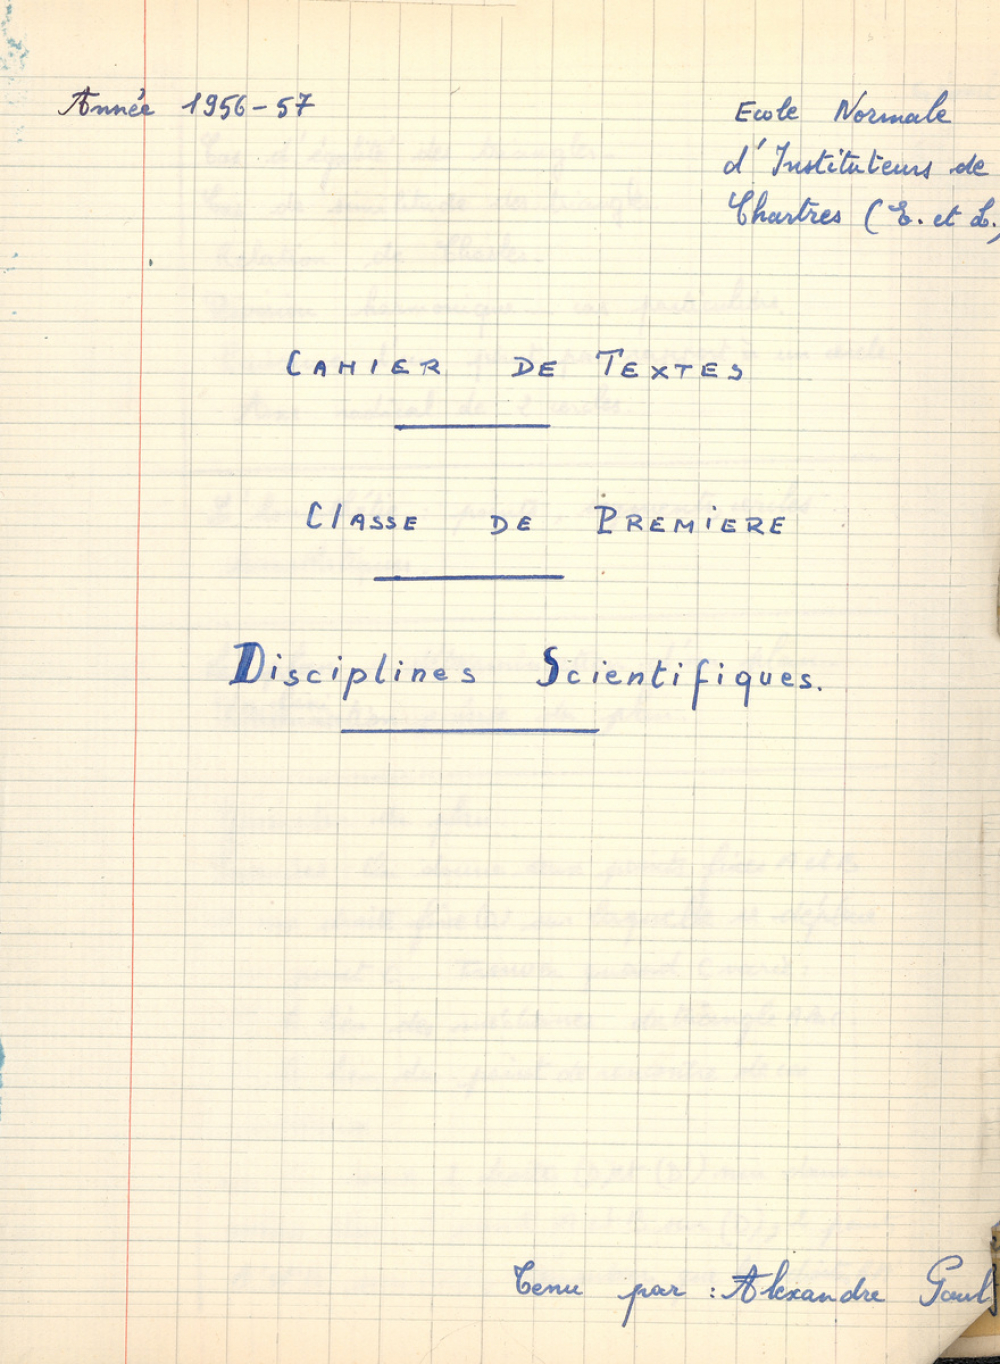 Année 1956-57
Ecole Normale
d'Instituteurs de
Chartres (E. et L.)
CAHIER DE TEXTES
CLASSE DE PREMIERE
Disciplines Scientifiques.
Tenu par : Alexandre